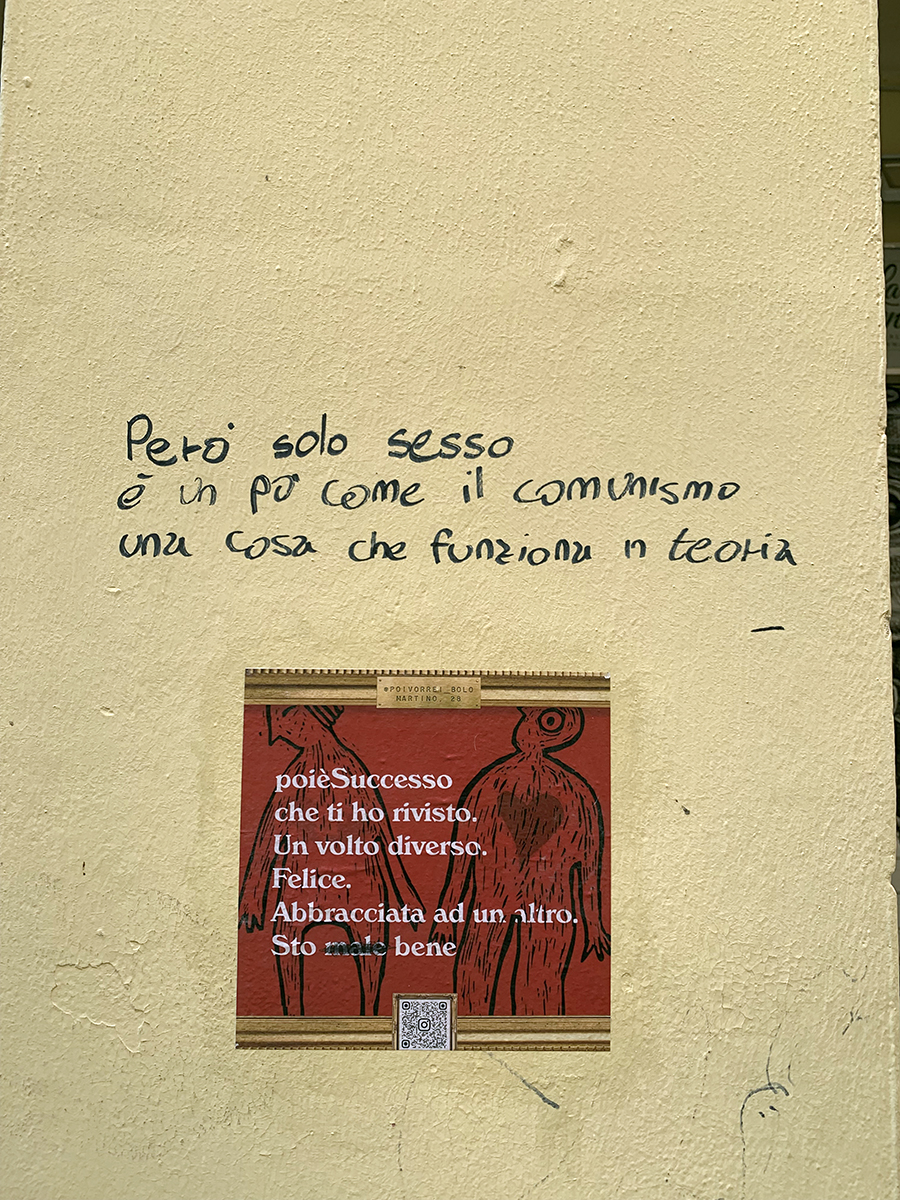 Però solo sesso
è un pò come il comunismo
una cosa che funziona in teoria
@POIVORREI_BOLO
MARTINO, 28
poièSuccesso
che ti ho rivisto.
Un volto diverso.
Felice.
Abbracciata ad un altro.
Sto male bene